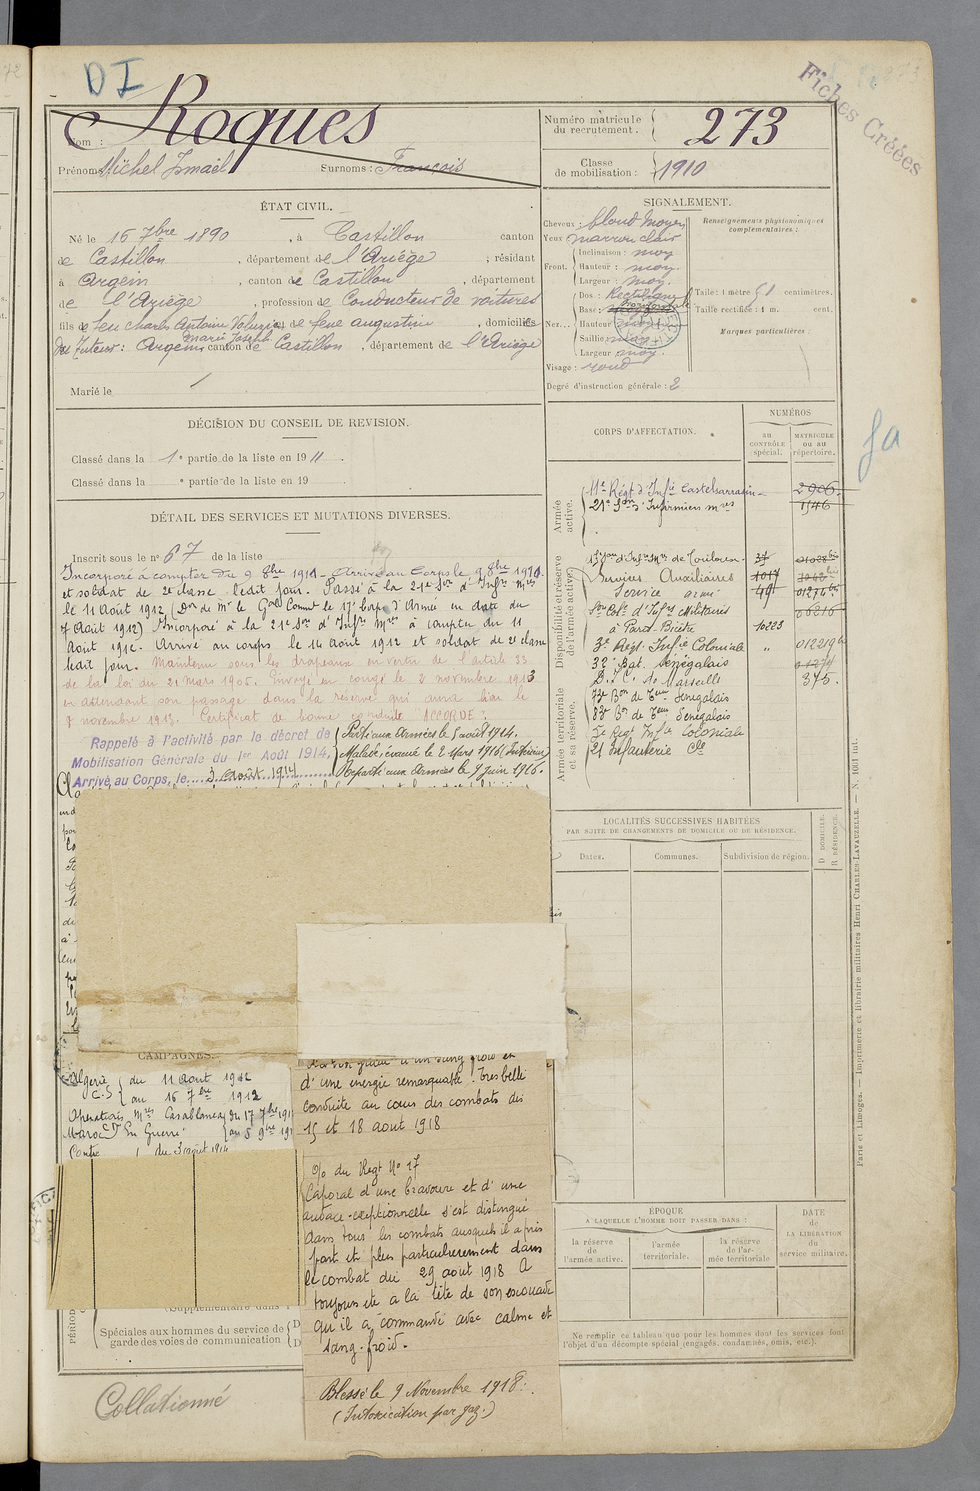 DI
Fiches Créées
Nom : Roques
Prénoms Michel Ismaël Surnoms : François
Numéro matricule du recrutement. 273
Classe de mobilisation : 1910
ÉTAT CIVIL.
Né le 16 7bre 1890, à Castillon canton
de Castillon, département de l'Ariège, résidant
à Argein, canton de Castillon, département
de l'Ariège, profession de Conducteur de voitures
fils de feu Charles Antoine et de feue Augustine, domiciliés
Marie Joseph
du tuteur : Argein, canton de Castillon, département de l'Ariège
Marié le
SIGNALEMENT.
Cheveux : blond moyen
Yeux marron clair
Front. Inclinaison : moy
Hauteur : moy.
Largeur : moy.
Nez... Dos : Rectiligne
Base :
Hauteur moy.
Saillie moy.
Largeur moy.
Visage : rond
Degré d'instruction générale : 2
Renseignements physionomiques
complémentaires :
Taille : 1 mètre 51 centimètres.
Taille rectifiée : 1 m. cent.
Marques particulières :
DÉCISION DU CONSEIL DE REVISION.
Classé dans la 1e partie de la liste en 1911.
Classé dans la e partie de la liste en 19 .
DÉTAIL DES SERVICES ET MUTATIONS DIVERSES.
Inscrit sous le no 67 de la liste
Incorporé à compter du 9 8bre 1911 Arrivé au Corps le 9 8bre 1911
et soldat de 2e classe ledit jour. Passé à la 21e Son d'Infirs Mres
le 11 Août 1912 (Don de Mr le Gal Commt le 17e Corps d'Armée en date du
7 Août 1912) Incorporé à la 21e Son d'Infirs Mres à compter du 11
Août 1912. Arrivé au corps le 14 Août 1912 et soldat de 2e classe
ledit jour. Maintenu sous les drapeaux en vertu de l'article 33
de la loi du 21 mars 1905. Envoyé en congé le 2 novembre 1913
en attendant son passage dans la réserve qui aura lieu le
8 novembre 1913. Certificat de bonne conduite "ACCORDÉ".
Rappelé à l'activité par le décret de
Mobilisation Générale du 1er Août 1914,
Arrivé au Corps, le 3 août 1914
Parti aux Armées le 5 août 1914.
Malade, évacué le 2 Mars 1916 (Intérieur)
Reparti aux Armées le 9 juin 1916.
CORPS D'AFFECTATION.
NUMÉROS
AU CONTRÔLE spécial.
MATRICULE OU AU répertoire.
Armée active.
11e Régt d'Infie Castelsarrasin 2906
21e Son d'Infirmiers mres 1546
Disponibilité et réserve de l'armée active.
17e Son d'Infirs Mres de Toulouse
Services Auxiliaires 1017
Service armé 49
Son Cole d'Infirs Militaires
à Parot-Bicêtre
3e Régt Infie Coloniale
32e Bat. Sénégalais
D.I.C. Marseille 375.
73e Bon de Teurs Sénégalais
83e Bon de Teurs Sénégalais
5e Régt Infie Coloniale
21 Infanterie Cle
Armée territoriale et sa réserve.
fa
LOCALITÉS SUCCESSIVES HABITÉES
PAR SUITE DE CHANGEMENTS DE DOMICILE OU DE RÉSIDENCE.
Dates. Communes. Subdivision de région. D DOMICILE. R RÉSIDENCE.
CAMPAGNES.
Algérie C.S du 11 Aout 1912
au 16 7bre 1912
Opérations Mres Casablanca du 17 7bre 191
Maroc En Guerre au 5 9bre 191
Contre du 3 août 1914
d'une energie remarquable. Tres belle
conduite au cours des combats des
15 et 18 aout 1918
O/o du Regt No 17
Caporal d'une bravoure et d'une
audace exceptionnelle s'est distingué
dans tous les combats auxquels il a pris
part et plus particulierement dans
le combat du 29 aout 1918 A
toujours ete a la tête de son escouade
qu'il a commandé avec calme et
sang-froid.
Blessé le 9 Novembre 1918.
(Intoxication par gaz.)
PÉRIOD
Supplémentaire dans l
Spéciales aux hommes du service de
garde des voies de communication
ÉPOQUE
A LAQUELLE L'HOMME DOIT PASSER DANS :
la réserve de l'armée active.
l'armée territoriale.
la réserve de l'armée territoriale
DATE de LA LIBÉRATION du service militaire.
Ne remplir ce tableau que pour les hommes dont les services font
l'objet d'un décompte spécial (engagés, condamnés, omis, etc.).
Collationné
Paris et Limoges. — Imprimerie et librairie militaires Henri CHARLES-LAVAUZELLE. — N. 1001 int.